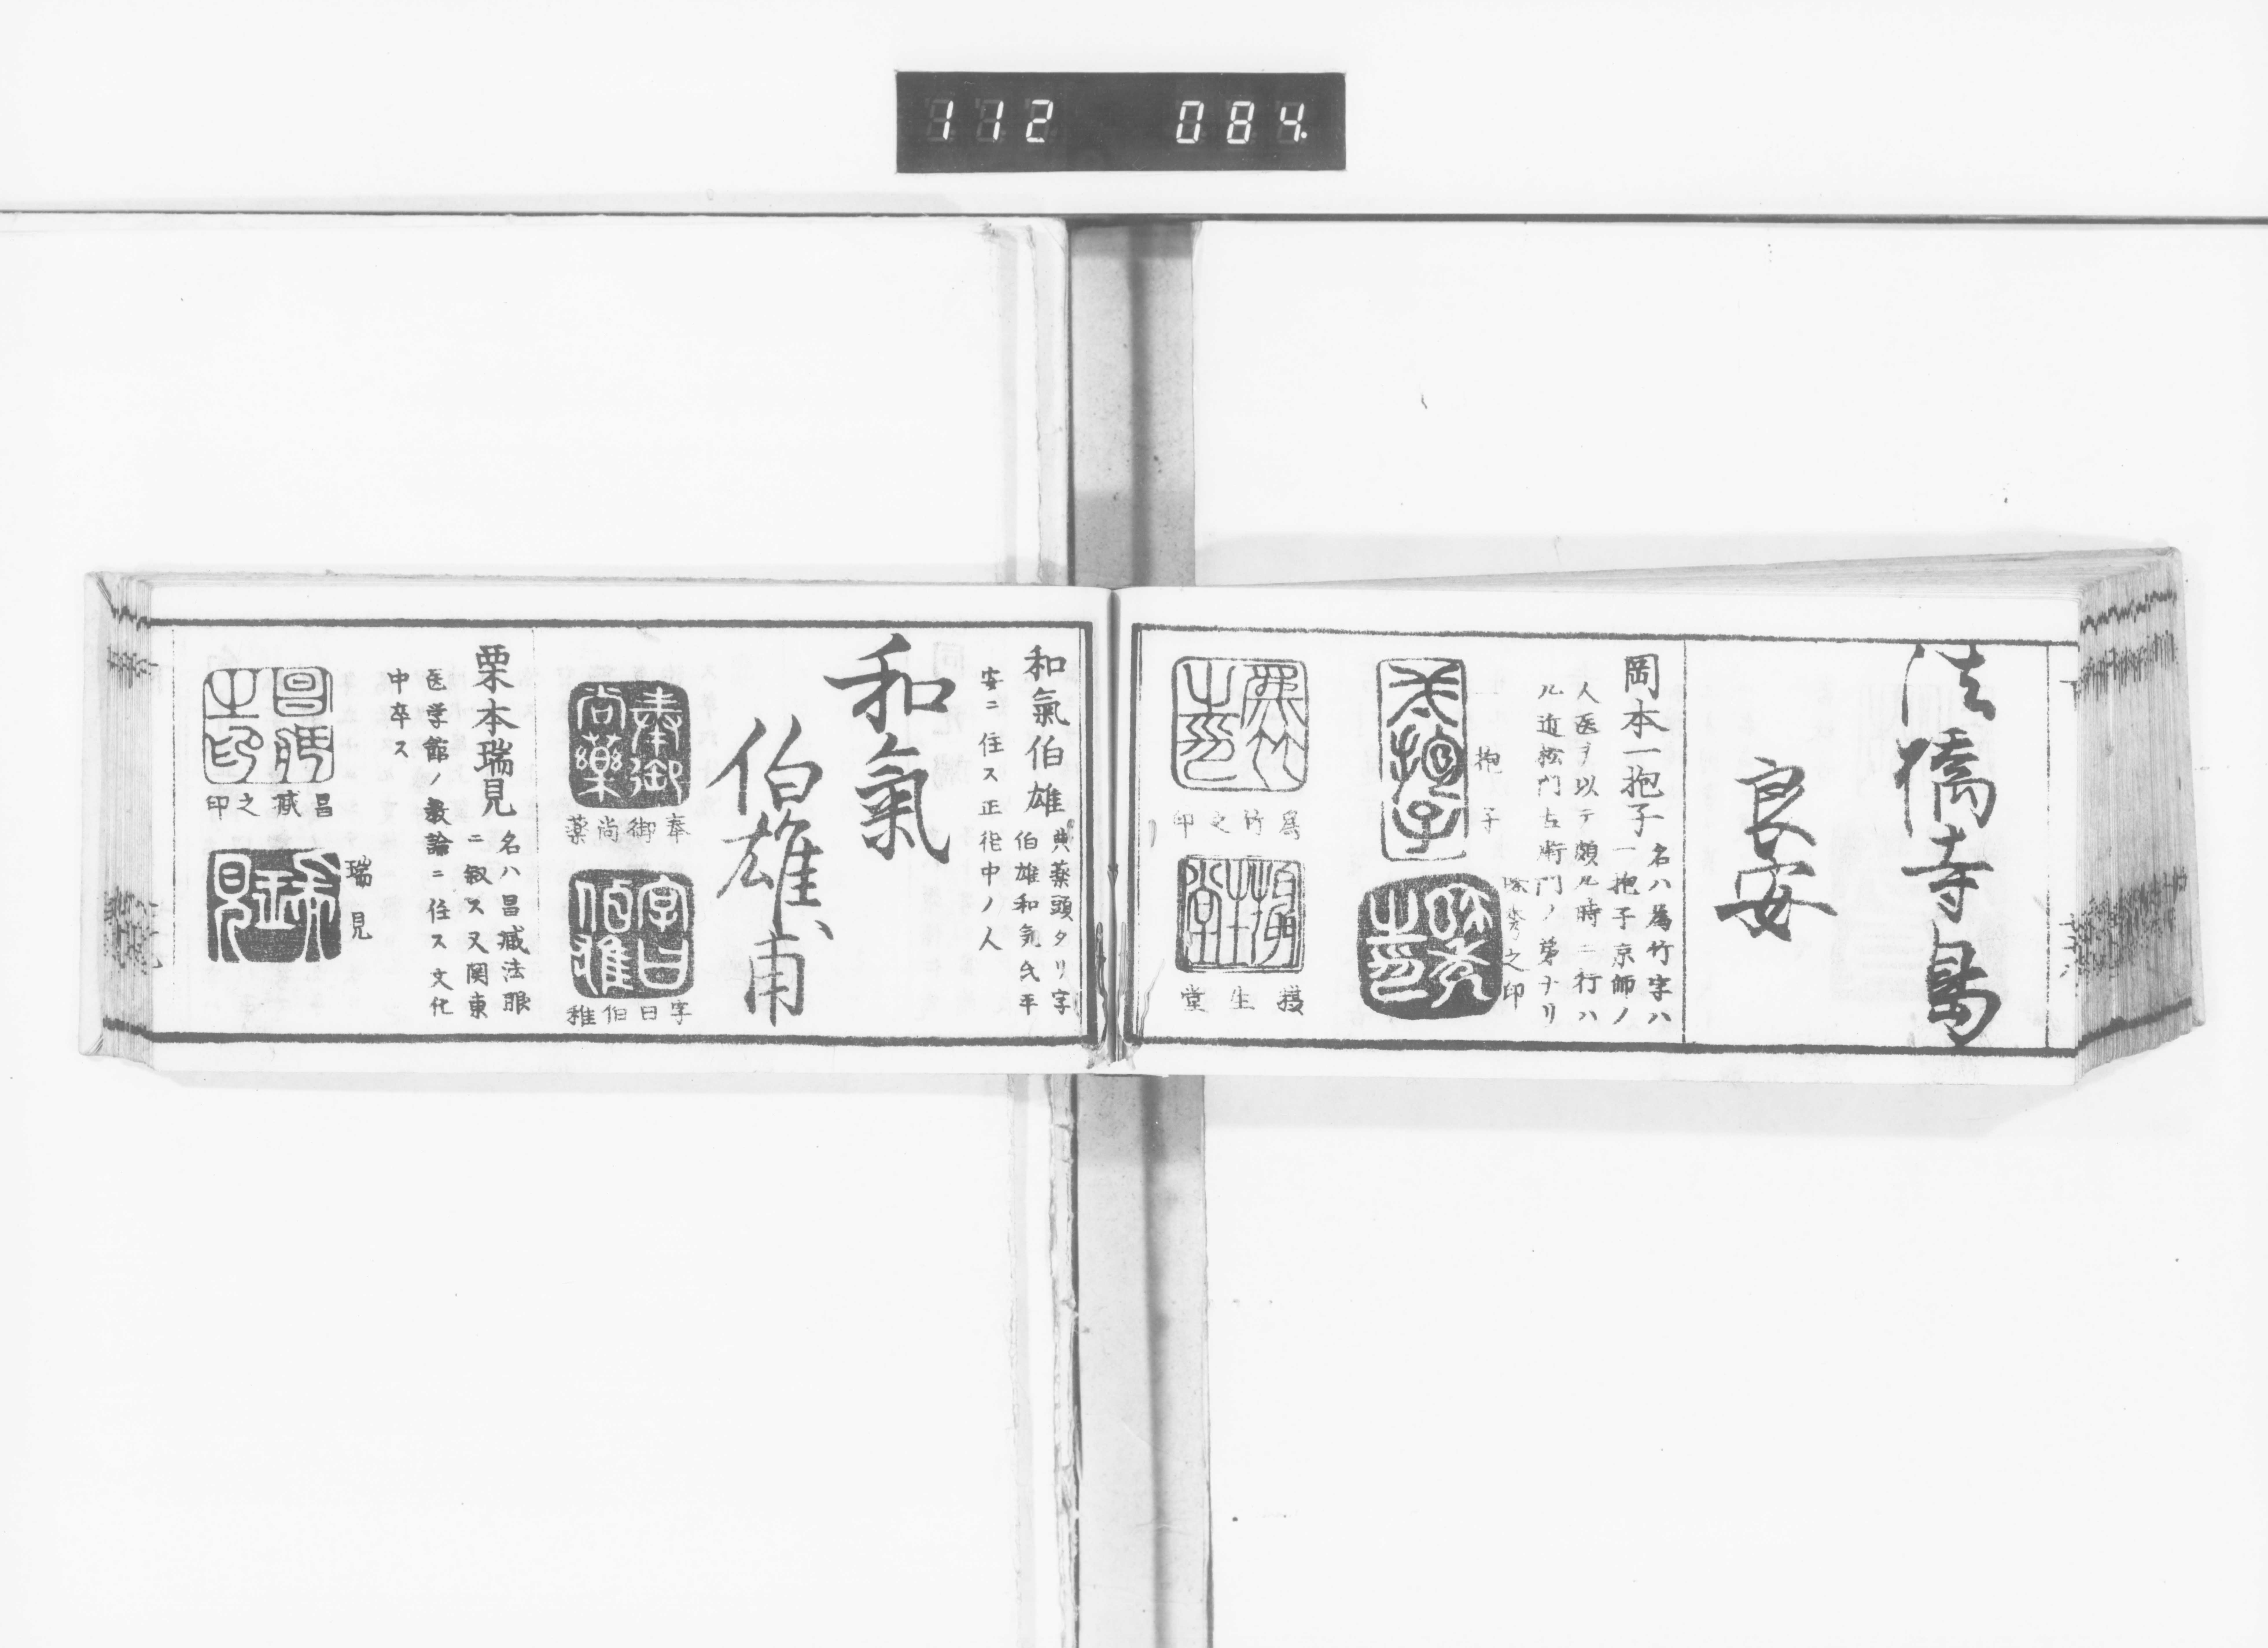 112 084
法橋寺島
良安
岡本一抱子 名ハ為竹字ハ
一抱子京師ノ
人医ヲ以テ頗ル時ニ行ハ
ル近松門左衛門ノ弟ナリ
一抱子
之印
為竹之印
堂生
和氣伯雄 典薬頭タリ字
伯雄和気氏平
安ニ住ス正徳中ノ人
和氣
伯雄甫
奉御尚薬
字曰伯雄
栗本瑞見 名ハ昌臧法眼
ニ叙ス又関東
医学館ノ教諭ニ任ス文化
中卒ス
昌臧之印
瑞見